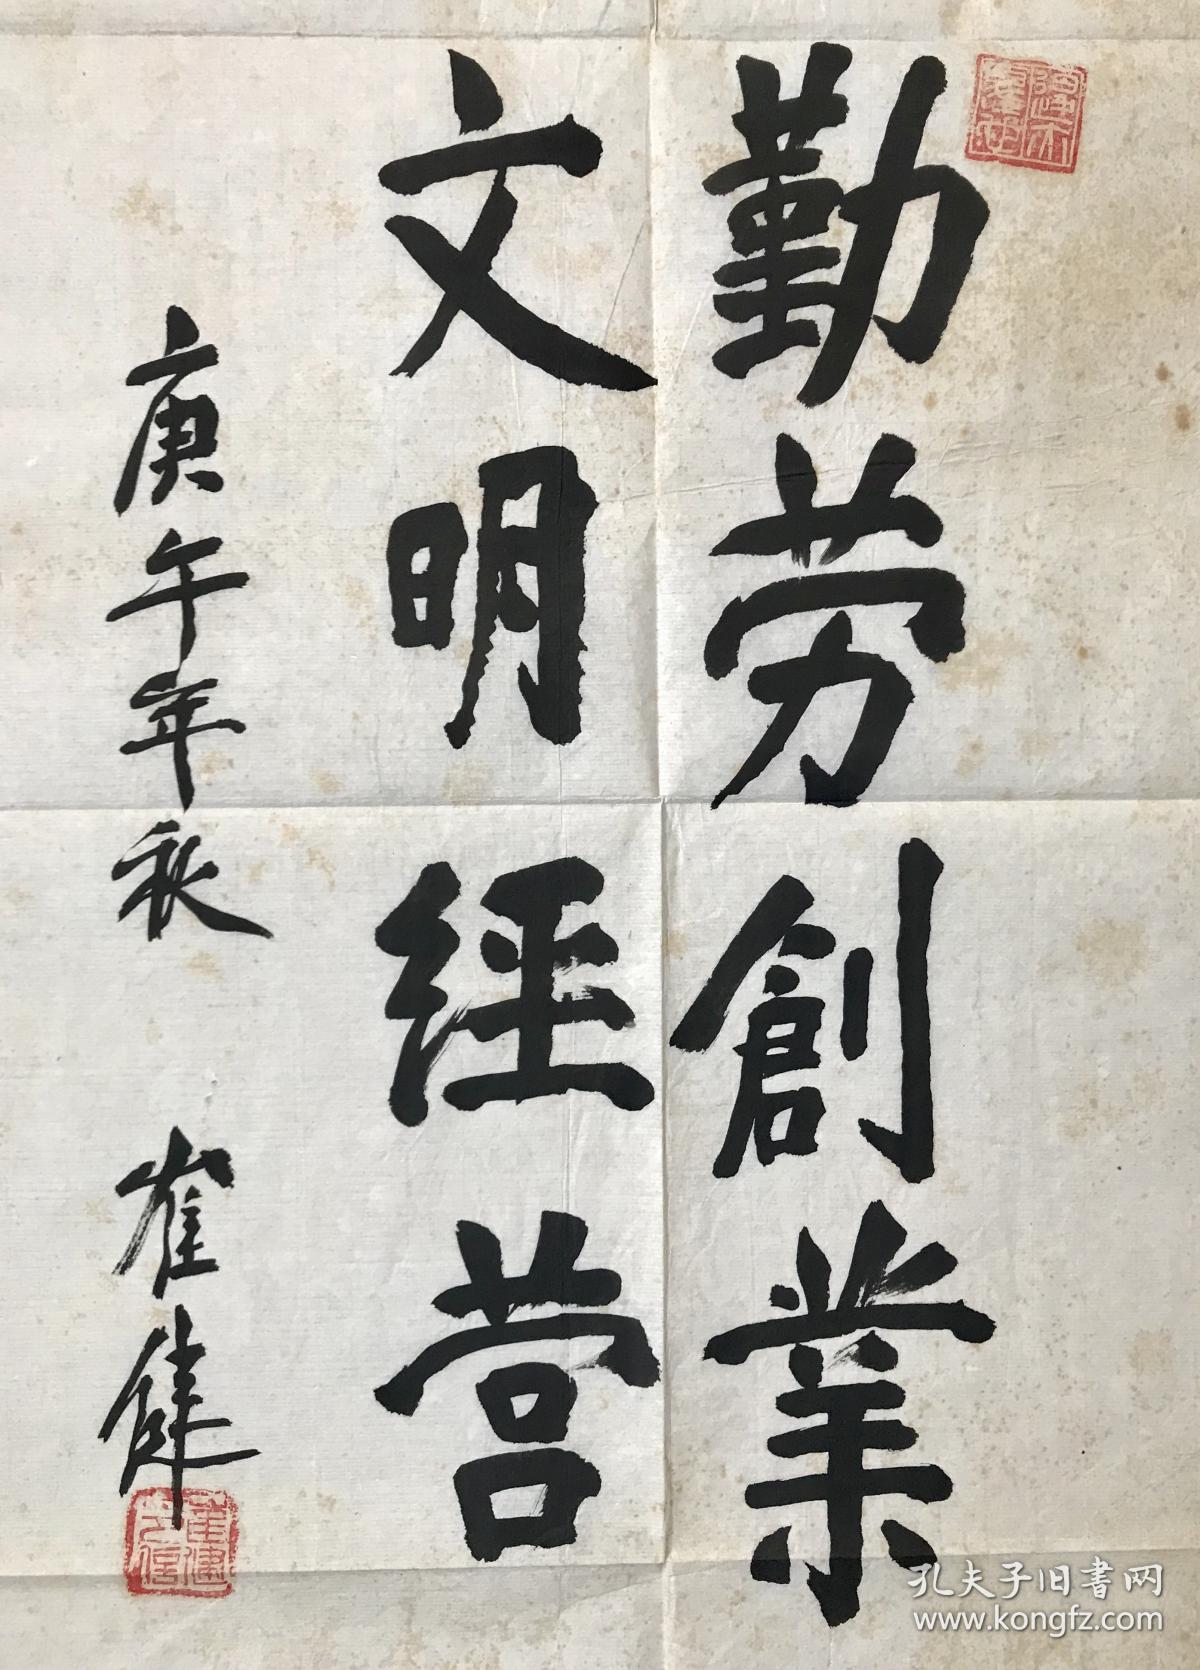 勤劳創業
文明経营
庚午年秋
崔健
孔夫子旧書网
www.kongfz.com